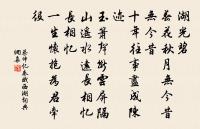 湖光碧
春花秋月無今昔
無今昔
十年往事盡成陳
迹
玉簫聲斷雲屏隔
山遙水遠長相憶
長相憶
一生懷抱為君牽
役
蔡伸憶秦娥西湖詞典
網